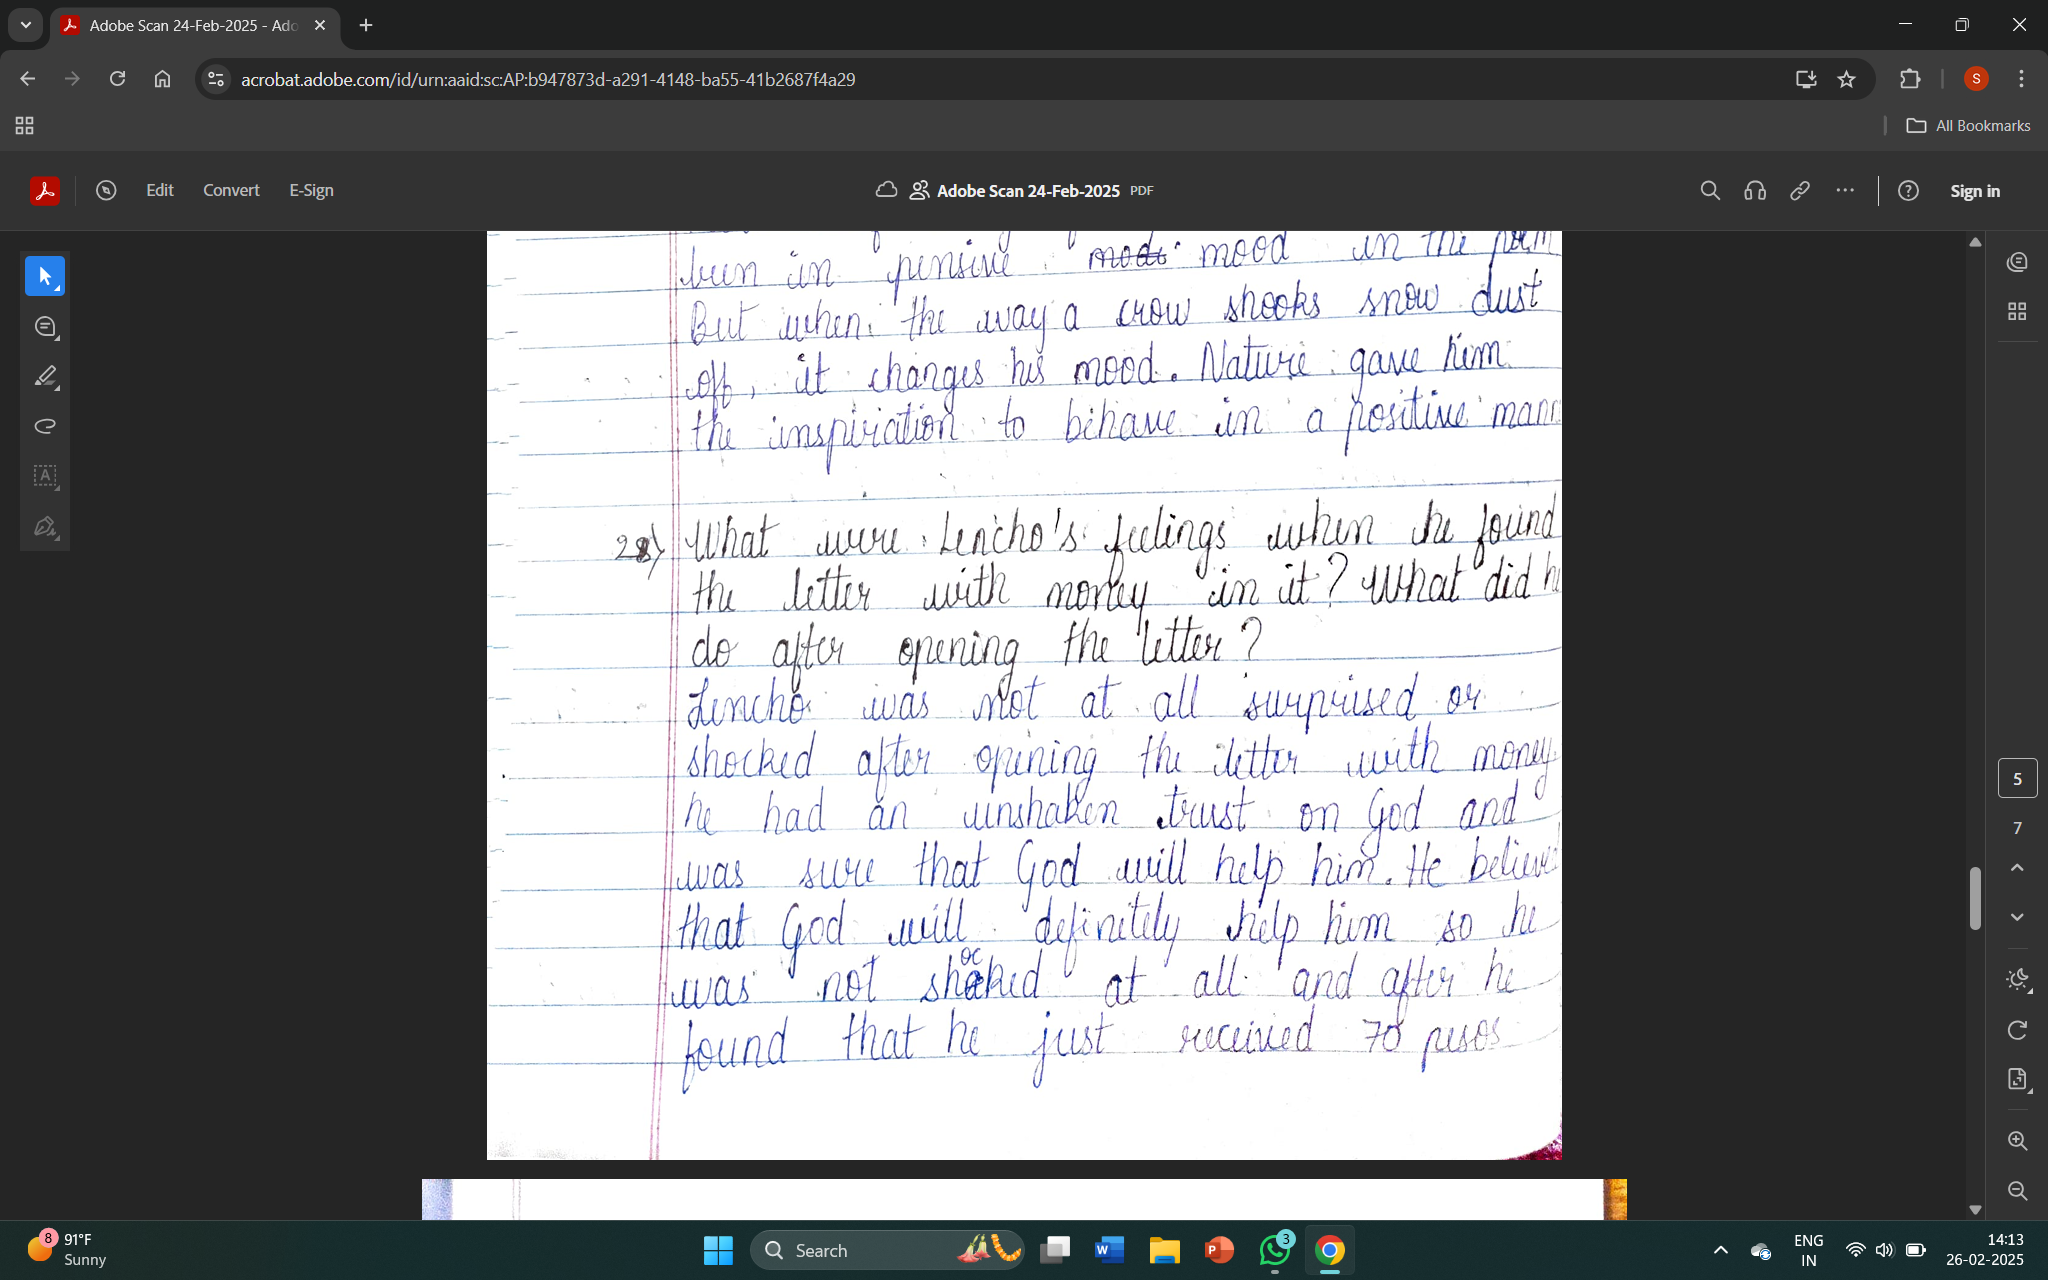 Adobe Scan 24-Feb-2025 - Ado
acrobat.adobe.com/id/urn:aaid:sc:AP:b947873d-a291-4148-ba55-41b2687f4a29
S
All Bookmarks
Edit Convert E-Sign
Adobe Scan 24-Feb-2025 PDF
Sign in
been in pensive mode mood in the poem
But when the way a crow shooks snow dust
off, it changes his mood. Nature gave him
the inspiriation to behave in a positive mann
28) What were Lencho's feelings when he found
the letter with money in it? What did he
do after opening the letter?
Lencho was not at all surprised or
shocked after opening the letter with money
he had an unshaken trust on God and
was sure that God will help him. He believe
that God will definitely help him so he
was not shocked at all and after he
found that he just received 70 pesos
5
7
8
91°F
Sunny
Search
3
ENG
IN
14:13
26-02-2025